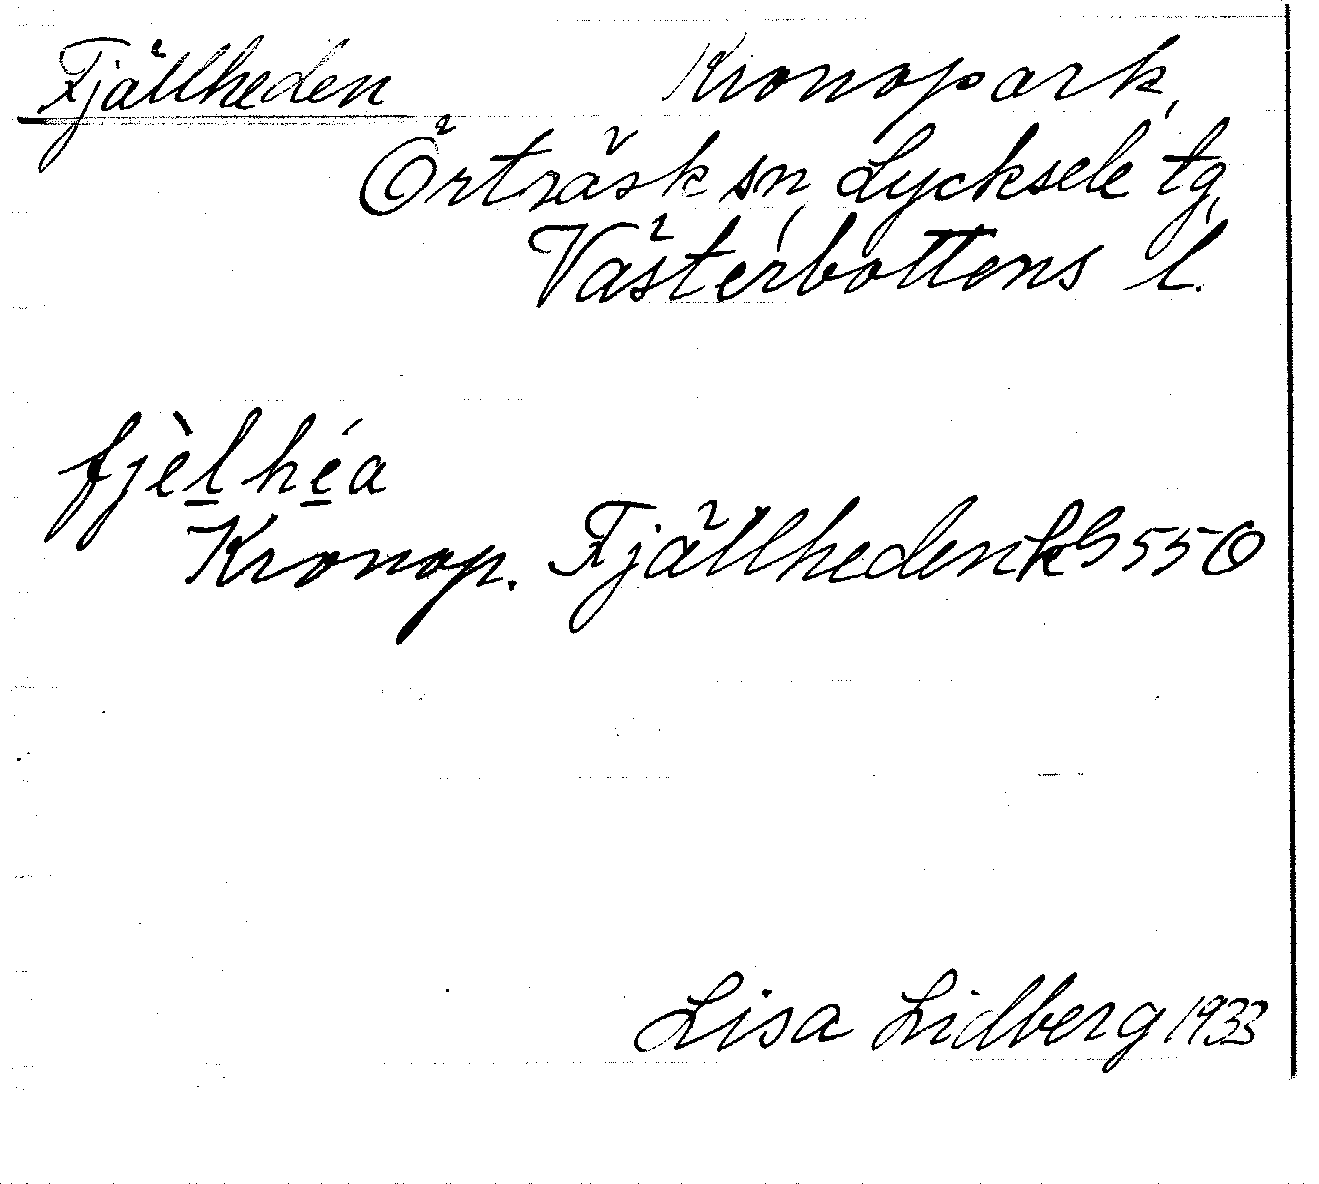 Fjällheden Kronopark,
Örträsk sn, Lycksele tg,
Västerbottens l.
fjèl̲hé̲a
Kronop. Fjällheden kS 550
Lisa Lidberg 1933